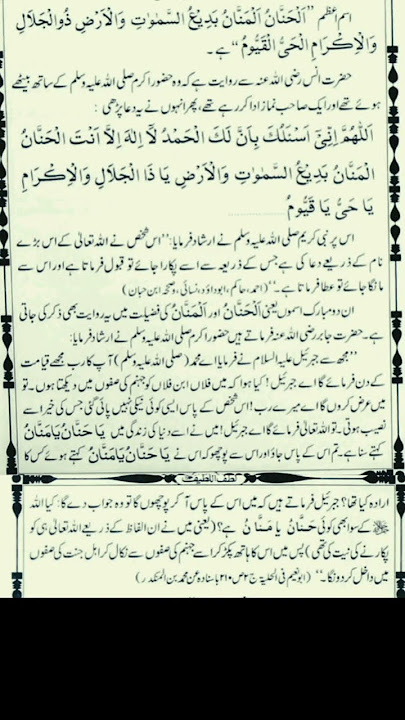 اسم اعظم ”اَلْحَنَّانُ اَلْمَنَّانُ بَدِیْعُ السَّمٰوٰتِ وَالْاَرْضِ ذُوالْجَلَالِ
وَالْاِکْرَامِ الْحَیُّ الْقَیُّوْمُ“ ہے۔
حضرت انس رضی اللہ عنہ سے روایت ہے کہ وہ حضور اکرم صلی اللہ علیہ وسلم کے ساتھ بیٹھے
ہوئے تھے اور ایک صاحب نماز ادا کر رہے تھے، پھر انہوں نے یہ دعا پڑھی :
اَللّٰھُمَّ اِنِّیْ اَسْئَلُكَ بِاَنَّ لَكَ الْحَمْدُ لَآ اِلٰهَ اِلَّا اَنْتَ الْحَنَّانُ
الْمَنَّانُ بَدِیْعُ السَّمٰوٰتِ وَالْاَرْضِ یَا ذَا الْجَلَالِ وَالْاِکْرَامِ
یَا حَیُّ یَا قَیُّوْمُ ..............
اس پر نبی کریم صلی اللہ علیہ وسلم نے ارشاد فرمایا: ”اس شخص نے اللہ تعالیٰ کے اس بڑے
نام کے ذریعے دعا کی ہے جس کے ذریعہ سے اسے پکارا جائے تو قبول فرماتا ہے اور اس سے
مانگا جائے تو عطا فرماتا ہے۔“ (احمد، حاکم، ابوداؤد، نسائی، صحیح ابن حبان)
ان دو مبارک اسموں یعنی اَلْحَنَّانُ اور اَلْمَنَّانُ کی فضیلت میں یہ روایت بھی ذکر کی جاتی
ہے۔ حضرت جابر رضی اللہ عنہ فرماتے ہیں حضور اکرم صلی اللہ علیہ وسلم نے ارشاد فرمایا:
”مجھ سے جبرئیل علیہ السلام نے فرمایا اے محمد (صلی اللہ علیہ وسلم) آپ کا رب مجھے قیامت
کے دن فرمائے گا اے جبرئیل! کیا ہوا کہ میں فلاں ابن فلاں کو جہنم کی صفوں میں دیکھتا ہوں۔ تو
میں عرض کروں گا اے میرے رب! اس شخص کے پاس ایسی کوئی نیکی نہیں پائی گئی جس کی خیر اسے
نصیب ہوتی۔ تو اللہ تعالیٰ فرمائے گا اے جبرئیل! میں نے اسے دنیا کی زندگی میں یَا حَنَّانُ یَا مَنَّانُ
کہتے سنا ہے۔ تم اس کے پاس جاؤ اور اس سے پوچھو کہ اس نے یَا حَنَّانُ یَا مَنَّانُ کہتے ہوئے کس کا
لطف اللطیف
ارادہ کیا تھا؟ جبرئیل فرماتے ہیں کہ میں اس کے پاس آ کر پوچھوں گا تو وہ جواب دے گا: کیا اللہ
کے سوا بھی کوئی حَنَّانُ یا مَنَّانُ ہے؟ (یعنی میں نے ان الفاظ کے ذریعے اللہ تعالیٰ ہی کو
پکارنے کی نیت کی تھی) پس میں اس کا ہاتھ پکڑ کر اسے جہنم کی صفوں سے نکال کر اہل جنت کی صفوں
میں داخل کر دونگا۔“ (ابو نعیم فی الحلیۃ ج ۶ ص ۲۱۰ باسنادہ عن محمد بن المنکدر)